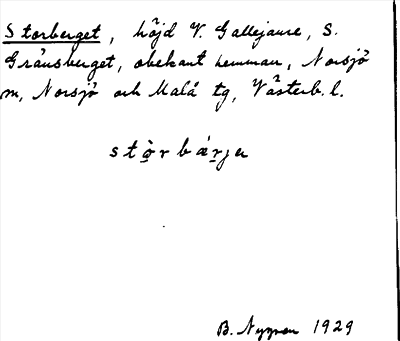 Storberget, höjd V. Gallejaure, S.
Gränsberget, obekant hemman, Norsjö
m, Norsjö och Malå tg, Västerb. l.
stòrbärje
B. Nygren 1929